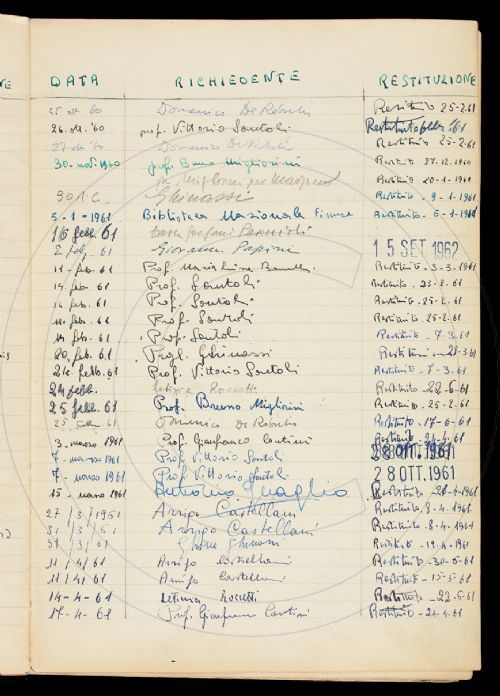 DATA RICHIEDENTE RESTITUZIONE
25 ott. '60 Domenico De Robertis Restituito 25-2-61
26. ott. '60 prof. Vittorio Santoli Restituito '61
27 ott. '60 Domenico De Robertis Restituito 25-2-61
30. nov. 1960 prof. Bruno Migliorini Restituito 27.12.1960
per Restituito 20-1-61
30 I C. Ghinassi Restituito - 9-1-61
5-1-1961 Biblioteca Nazionale Firenze Restituito 5-1-1961
16 febb. 61
2 feb. 61 Giovanni Papini 15 SET. 1962
11 - feb. 61 Prof. Maria Luisa Restituito - 3-3-1961
14. feb. 61 Prof. Santoli Restituito. 25-2-61
14 feb. 61 Prof. Santoli Restituito. 25-2-61
14. feb. 61 Prof. Santoli Restituito. 25-2-61
14 feb. 61 Prof. Santoli Restituito - 7-3-61
20. feb. 61 Prof. Ghinassi Restituito - 21-3-61
24. febb. 61 Prof. Vittorio Santoli Restituito - 7-3-61
24 febb. Letizia Roccetti Restituito 22-6-61
25 febb. 61 Prof. Bruno Migliorini Restituito - 25-2-61
25 61 Domenico De Robertis Restituito - 17-6-61
3. marzo 1961 Prof. Gianfranco Contini Restituito 21-4-61
7 - marzo 1961 Prof. Vittorio Santoli 28 OTT. 1961
7 - marzo 1961 Prof. Vittorio Santoli 28 OTT. 1961
15 - marzo 1961 Antonio Quaglio Restituito - 20-4-1961
27/3/1961 Arrigo Castellani Restituito. 8-4-1961
31/3/61 Arrigo Castellani Restituito - 8-4-1961
31/3/61 Ghino Ghinassi Restituito - 19-4-1961
11/4/61 Arrigo Castellani Restituito - 30-5-61
11/4/61 Arrigo Castellani Restituito - 15-5-61
14-4-61 Letizia Roccetti Restituito - 22-6-61
17-4-61 Prof. Gianfranco Contini Restituito - 21-4-61